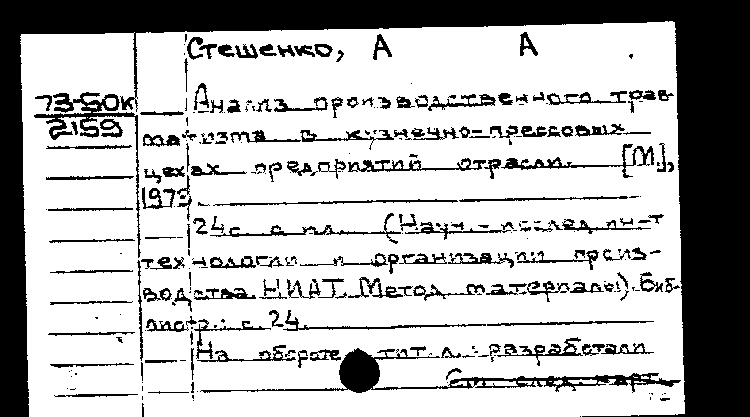 Стешенко, А А
73-50к
2159
Анализ производственного трав-
матизма в кузнечно-прессовых
цехах предприятий отрасли. [М],
24с. с ил. (Науч.-исслед. ин-т
технологии и организации произ-
водства НИАТ. Метод. материалы). Биб-
лиогр.: с. 24.
На обороте тит. л.: разработали
См. след. карт.